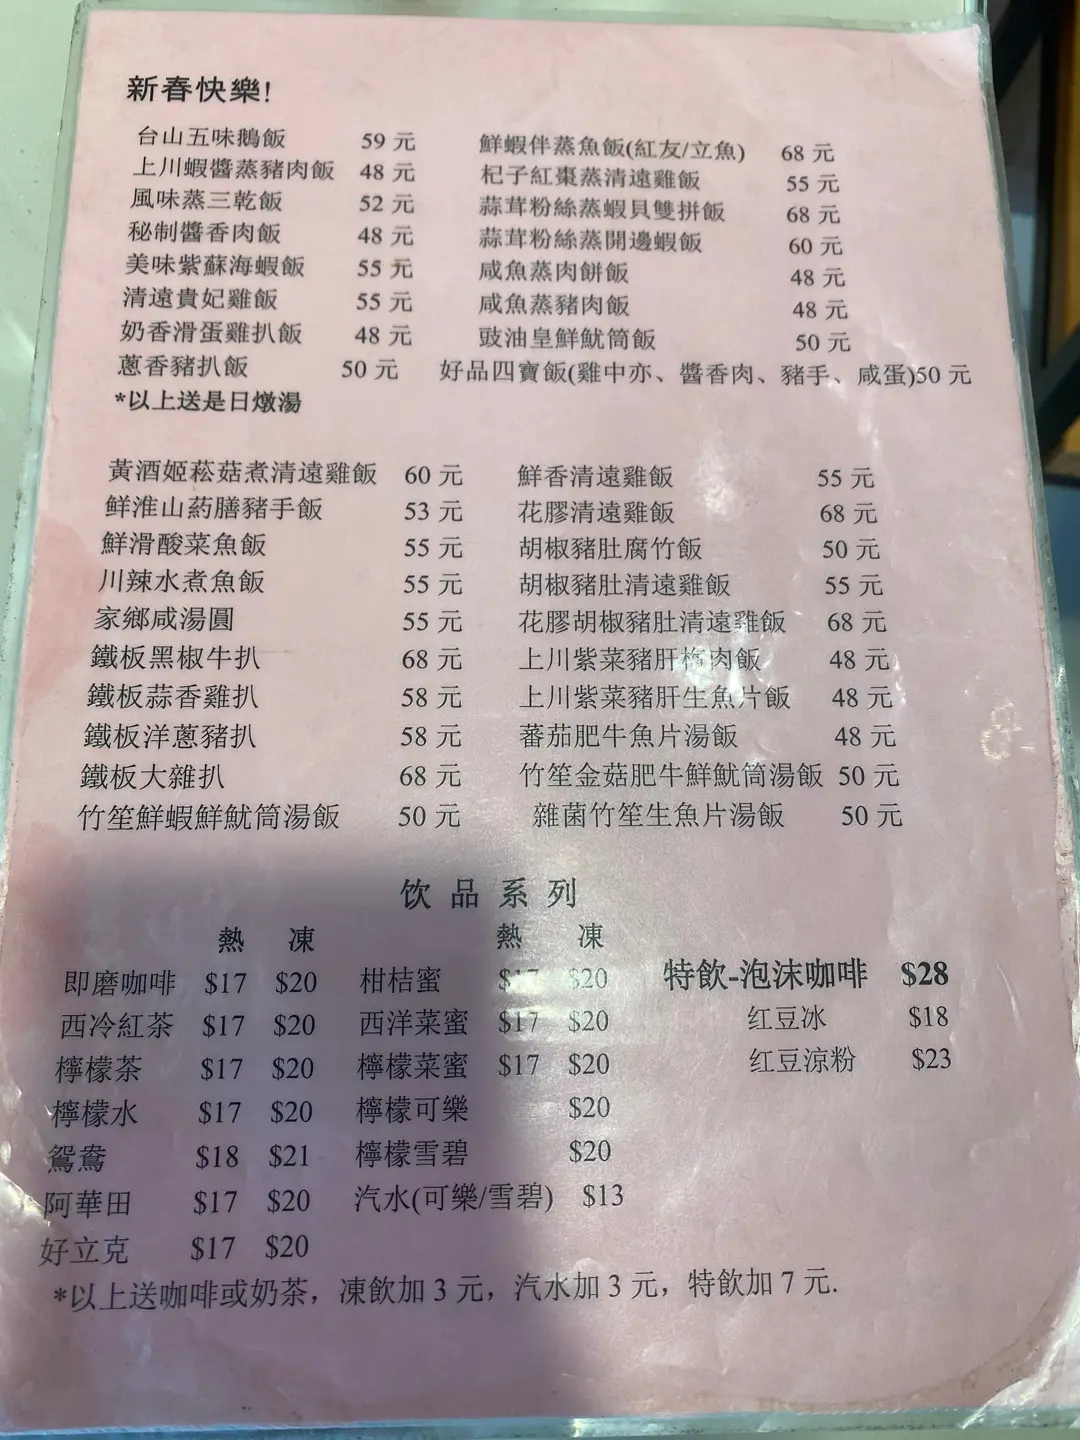 新春快樂!
台山五味鵝飯 59 元 鮮蝦伴蒸魚飯(紅友/立魚) 68 元
上川蝦醬蒸豬肉飯 48 元 杞子紅棗蒸清遠雞飯 55 元
風味蒸三乾飯 52 元 蒜茸粉絲蒸蝦貝雙拼飯 68 元
秘制醬香肉飯 48 元 蒜茸粉絲蒸開邊蝦飯 60 元
美味紫蘇海蝦飯 55 元 咸魚蒸肉餅飯 48 元
清遠貴妃雞飯 55 元 咸魚蒸豬肉飯 48 元
奶香滑蛋雞扒飯 48 元 豉油皇鮮魷筒飯 50 元
蔥香豬扒飯 50 元 好品四寶飯(雞中亦、醬香肉、豬手、咸蛋)50 元
*以上送是日燉湯
黃酒姬菘菇煮清遠雞飯 60 元 鮮香清遠雞飯 55 元
鮮淮山葯膳豬手飯 53 元 花膠清遠雞飯 68 元
鮮滑酸菜魚飯 55 元 胡椒豬肚腐竹飯 50 元
川辣水煮魚飯 55 元 胡椒豬肚清遠雞飯 55 元
家鄉咸湯圓 55 元 花膠胡椒豬肚清遠雞飯 68 元
鐵板黑椒牛扒 68 元 上川紫菜豬肝梅肉飯 48 元
鐵板蒜香雞扒 58 元 上川紫菜豬肝生魚片飯 48 元
鐵板洋蔥豬扒 58 元 蕃茄肥牛魚片湯飯 48 元
鐵板大雜扒 68 元 竹笙金菇肥牛鮮魷筒湯飯 50 元
竹笙鮮蝦鮮魷筒湯飯 50 元 雜菌竹笙生魚片湯飯 50 元
饮品系列
熱 凍 熱 凍
即磨咖啡 $17 $20 柑桔蜜 $17 $20 特飲-泡沫咖啡 $28
西冷紅茶 $17 $20 西洋菜蜜 $17 $20 红豆冰 $18
檸檬茶 $17 $20 檸檬菜蜜 $17 $20 红豆涼粉 $23
檸檬水 $17 $20 檸檬可樂 $20
鴛鴦 $18 $21 檸檬雪碧 $20
阿華田 $17 $20 汽水(可樂/雪碧) $13
好立克 $17 $20
*以上送咖啡或奶茶，凍飲加 3 元，汽水加 3 元，特飲加 7 元.